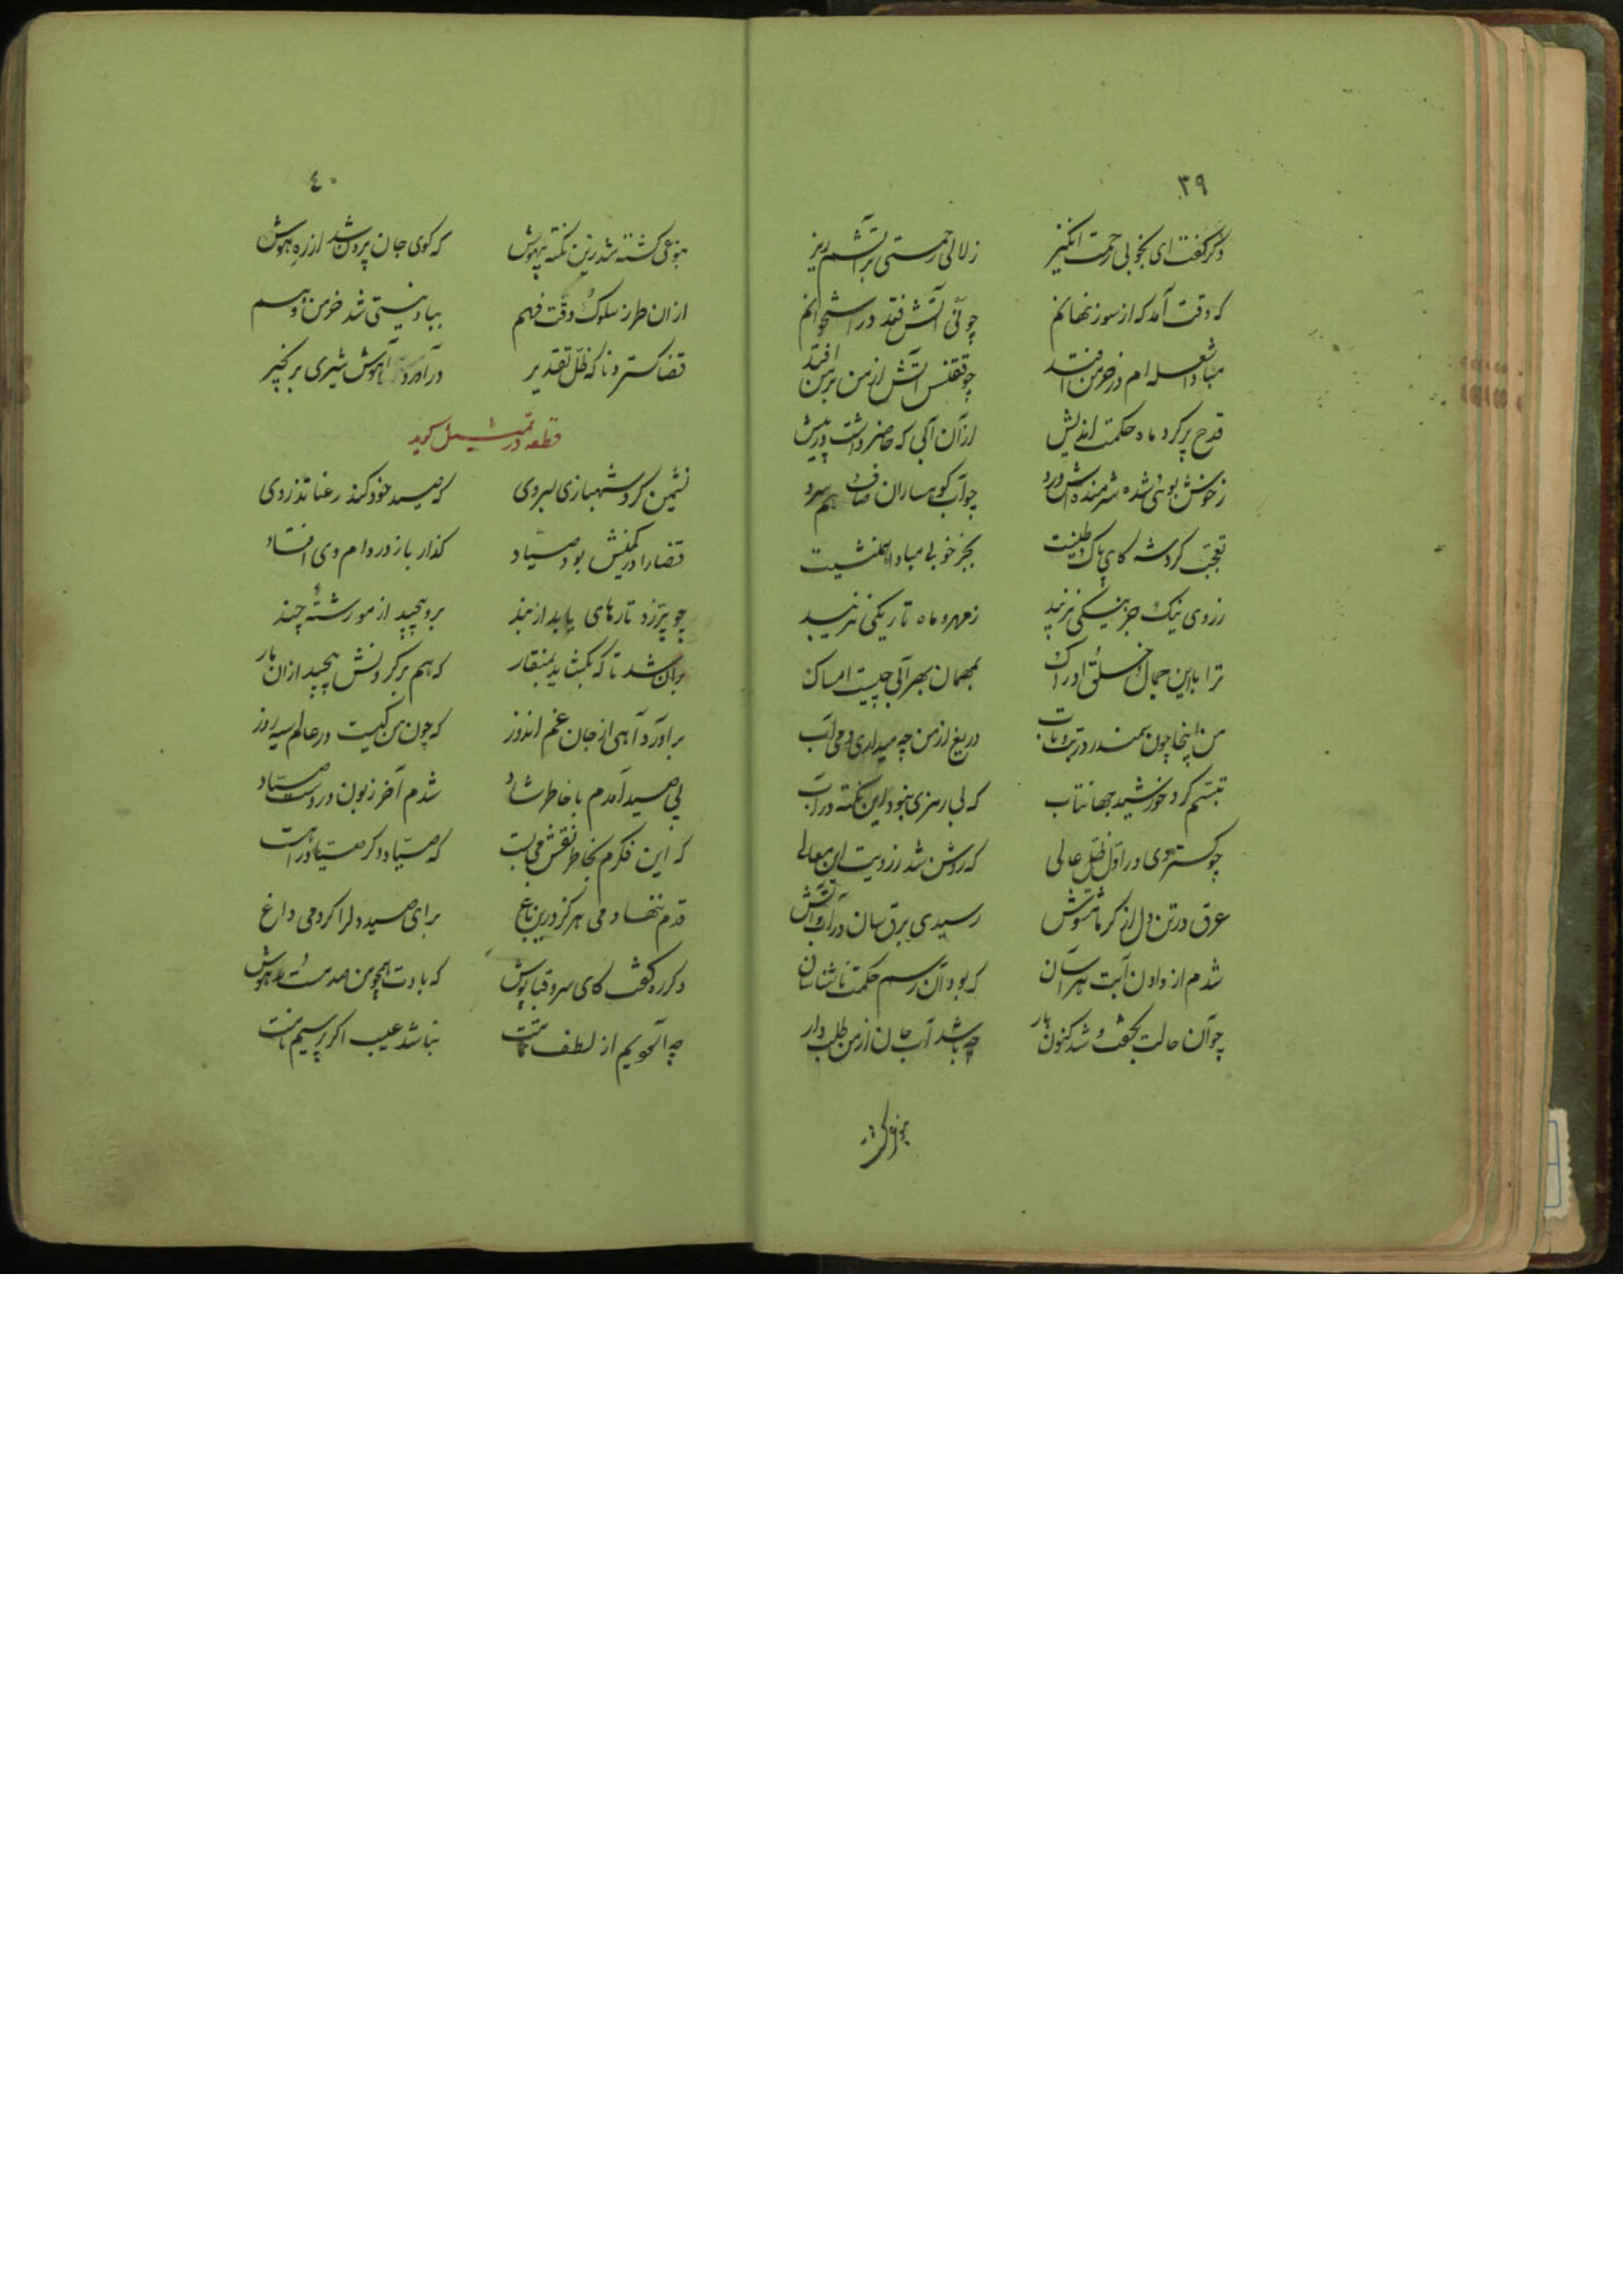 ۳۹
دگر گفت ای بخوبی رحمت انگیز زلالی رحمتی بر آتشم ریز
که وقت آمد که از سوز نهانم چو نی آتش فتد در استخوانم
مبادا شعله ام در خرمن افتد چو ققنس آتش از من بر من افتد
قدح پر کرد ماه حکمت اندیش از آن آبی که حاضر داشت در پیش
ز خوش بوئی شده شرمنده اش ورد چو آب کوهساران صاف هم سرد
تعجب کرد شه کای پاک طینت بجز خوبی مبادا همنشینت
ز روی نیک جز نیکی نزیبد ز مهر و ماه تاریکی نزیبد
ترا با این جمال و خلق و ادراک بمهمان بهر آبی چیست امساک
من اینجا چون سمندر در تب و تاب دریغ از من چه میداری دمی آب
تبسم کرد خورشید جهانتاب که بی رمزی نبود این نکته در آب
چو گستردی در اول ظل عالی که روشن شد ز رویت این معالی
عرق در تن دل از گرما مشوش رسیدی برق سان در آب و آتش
شدم از دادن آبت هراسان که بود آن رسم حکمت ناشناسان
چو آن حالت بخفت و شد کنون یار چه باشد آب جان از من طلب دار
بنوعی گشته

٤۰
بنوعی گشته شد زین نکته بیهوش که گوی جان برون شد از ره هوش
از آن طرز سلوک و دقت فهم بباد نیستی شد خرمن وهم
قضا گسترد ناگه ظل تقدیر درآورد آهوش شیری بزنجیر
قطعه در تمثیل گوید
نشیمن کرد شهبازی بسروی که صید خود کند رعنا تذروی
قضا را در کمینش بود صیاد گذار باز در دام وی افتاد
چو پر زد تارهای پا بد از بند برو پیچید از مو رشتهٔ چند
بران شد تا که بگشاید بمنقار که هم بر گردنش پیچید از ان بار
برآورد آهی از جان غم اندوز که چون من کیست در عالم سیه روز
پی صید آمدم با خاطر شاد شدم آخر زبون در دست صیاد
که این فکرم بخاطر نقش می بست که صیاد دگر صیاد را هست
قدم ننهادمی هرگز درین باغ برای صید دل را کردمی داغ
دگر ره گفت کای سرو قباپوش که بادت همچو من صد مست و مدهوش
چه آن گویم از لطف تمامت نباشد عیب اگر پرسیم نامت